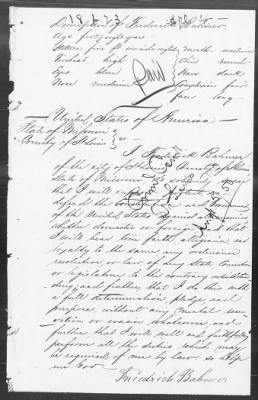 Frederick Bahmer
Age forty eight years
Stature five ft six inches high
Mouth medium
Forehead high
Chin round
Eyes blue
Hair dark
Nose medium
Complexion fair
face long
Paid
United States of America
State of Missouri
County of St Louis } ss
I Frederick Bahmer
of the city of St Louis County of St Louis
State of Missouri do solemnly swear
that I will support protect and
defend the Constitution and Government
of the United States against all enemies
whether domestic or foreign and that
I will bear true faith allegiance and
loyalty to the same any ordinance
resolution or law of any State Convention
or legislature to the contrary notwithstanding
and further that I do this with
a full determination pledge and
purpose without any mental reservation
or evasion whatsoever and
further that I will well and faithfully
perform all the duties which may
be required of me by law so help
me God
Friedrich Bahmer